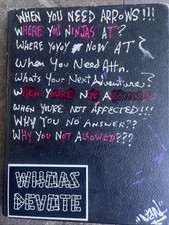 WHEN YOU NEED ARROWS!!!
WHERE YOU NINJAS AT?
WHERE YOYOY NOW AT?
When You Need Attn
Whats Your Next Adventure?
WHEN YOU'RE NOT
WHEN YOU'RE NOT AFFECTED!!!
WHY YOU NO ANSWER??
WHY YOU NOT ALLOWED???
WHOAS
DEVOTE